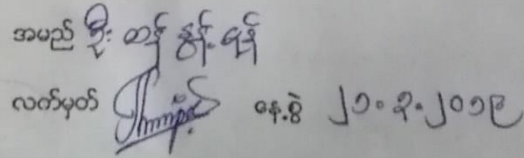 အမည် ဦး တန် နွန်း ရန်
လက်မှတ် နေ့စွဲ ၂၁.၃.၂၀၁၉